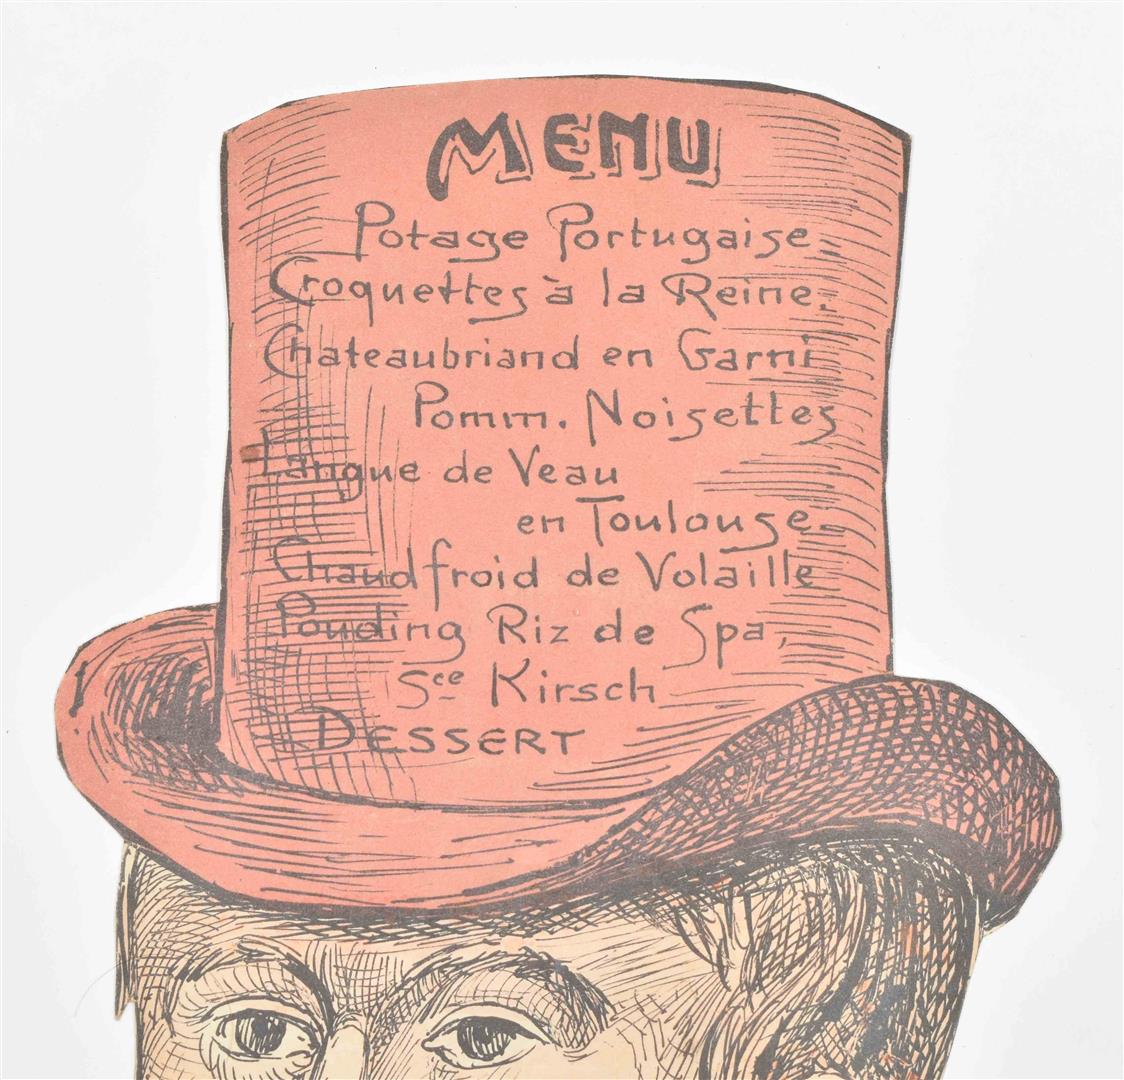 MENU
Potage Portugaise
Croquettes à la Reine.
Chateaubriand en Garni
Pomm. Noisettes
Langue de Veau
en Toulouse
Chaud froid de Volaille
Pouding Riz de Spa,
Sce Kirsch
DESSERT